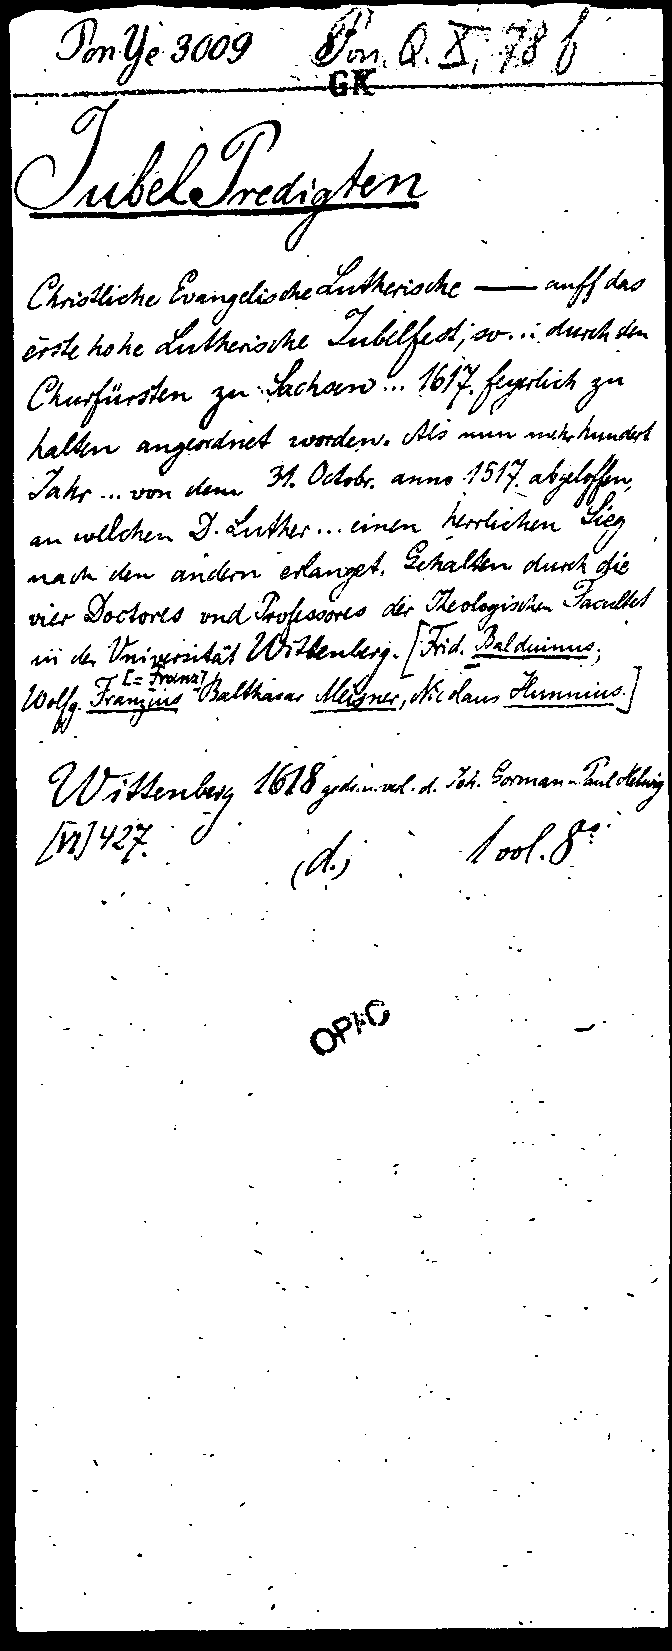 Pon Ye 3009 Pon. Q. X, 78 f
GK
Jubel-Predigten
Christliche Evangelische Lutherische — auff das
erste hohe Lutherische Jubelfest, so...: durch den
Churfürsten zu Sachsen... 1617. feyerlich zu
halten angeordnet worden. Als nun mehr hundert
Jahr... von dem 31. Octobr. anno 1517. abgeloffen,
an welchen D. Luther... einen herrlichen Sieg
nach den andern erlanget. Gehalten durch die
vier Doctores vnd Professores der Theologischen Facultet
in der Universität Wittenberg. [Frid. Balduinus,
[= Franz]
Wolfg. Franzius Balthasar Meisner, Nicolaus Hunnius.]
Wittenberg 1618 gedr. u. verl. d. Joh. Gorman u. Paul Helwig
[VI] 427.
(d.) 1 vol. 8°.
OPAC